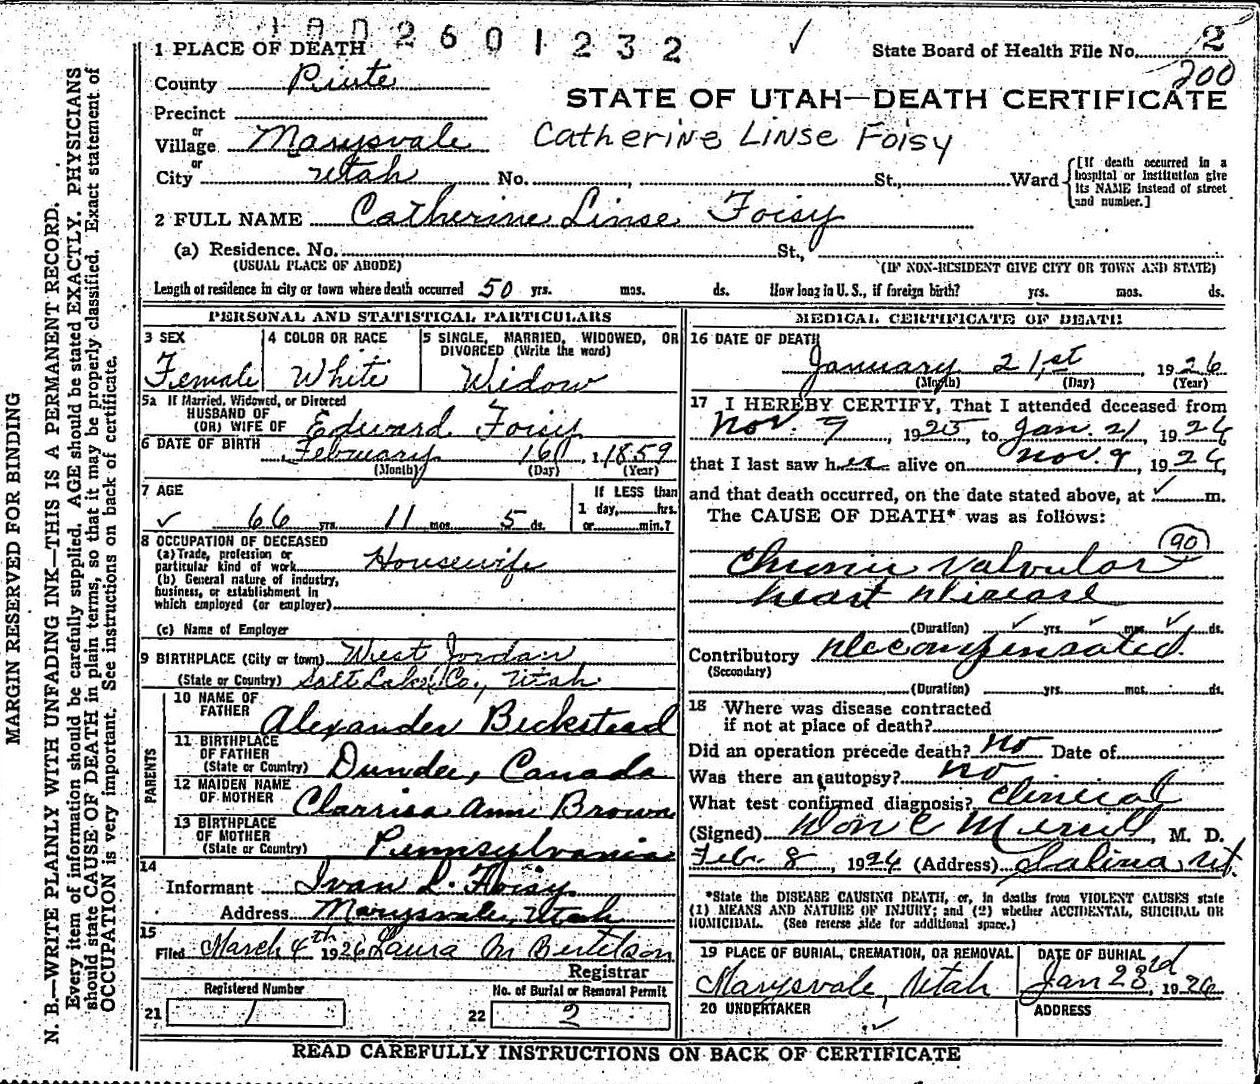 2601232
1 PLACE OF DEATH
State Board of Health File No. 2
200
County Piute
STATE OF UTAH—DEATH CERTIFICATE
Precinct
or
Village Marysvale
Catherine Linse Foisy
or
City Utah No. , St., Ward
[If death occurred in a hospital or institution give its NAME instead of street and number.]
2 FULL NAME Catherine Linse Foisy
(a) Residence. No. St.,
(USUAL PLACE OF ABODE) (IF NON-RESIDENT GIVE CITY OR TOWN AND STATE)
Length of residence in city or town where death occurred 50 yrs. mos. ds. How long in U. S., if foreign birth? yrs. mos. ds.
PERSONAL AND STATISTICAL PARTICULARS
3 SEX
Female
4 COLOR OR RACE
White
5 SINGLE, MARRIED, WIDOWED, OR
DIVORCED (Write the word)
Widow
5a If Married, Widowed, or Divorced
HUSBAND OF
(OR) WIFE OF Edward Foisy
6 DATE OF BIRTH February 16 1859
(Month) (Day) (Year)
7 AGE
66 yrs. 11 mos. 5 ds.
If LESS than
1 day, hrs.
or min.?
8 OCCUPATION OF DECEASED
(a) Trade, profession or
particular kind of work Housewife
(b) General nature of industry,
business, or establishment in
which employed (or employer)
(c) Name of Employer
9 BIRTHPLACE (City or town) West Jordan
(State or Country) Salt Lake Co., Utah
PARENTS
10 NAME OF
FATHER Alexander Beckstead
11 BIRTHPLACE
OF FATHER
(State or Country) Dundee, Canada
12 MAIDEN NAME
OF MOTHER Clarrisa Ann Brown
13 BIRTHPLACE
OF MOTHER
(State or Country) Pennsylvania
14
Informant Ivan L. Foisy
Address Marysvale, Utah
15
Filed March 4th 1926 Laura M Bertelson
Registrar
Registered Number
21 1
No. of Burial or Removal Permit
22 2
MEDICAL CERTIFICATE OF DEATH
16 DATE OF DEATH
January 21st, 1926
(Month) (Day) (Year)
17 I HEREBY CERTIFY, That I attended deceased from
Nov. 9, 1925, to Jan. 21 1926
that I last saw her alive on Nov. 9, 1926,
and that death occurred, on the date stated above, at m.
The CAUSE OF DEATH* was as follows:
90
Chronic Valvular
heart disease
(Duration) yrs. mos. ds.
Contributory Decompensated.
(Secondary)
(Duration) yrs. mos. ds.
18 Where was disease contracted
if not at place of death?
Did an operation precede death? No Date of
Was there an autopsy? No
What test confirmed diagnosis? Clinical
(Signed) Don C Merrill, M. D.
Feb. 8, 1926 (Address) Salina, Ut.
*State the DISEASE CAUSING DEATH, or, in deaths from VIOLENT CAUSES state
(1) MEANS AND NATURE OF INJURY; and (2) whether ACCIDENTAL, SUICIDAL OR
HOMICIDAL. (See reverse side for additional space.)
19 PLACE OF BURIAL, CREMATION, OR REMOVAL
Marysvale, Utah
DATE OF BURIAL
Jan 23rd, 1926
20 UNDERTAKER
ADDRESS
READ CAREFULLY INSTRUCTIONS ON BACK OF CERTIFICATE
MARGIN RESERVED FOR BINDING
N. B.—WRITE PLAINLY WITH UNFADING INK—THIS IS A PERMANENT RECORD.
Every item of information should be carefully supplied. AGE should be stated EXACTLY. PHYSICIANS
should state CAUSE OF DEATH in plain terms, so that it may be properly classified. Exact statement of
OCCUPATION is very important. See instructions on back of certificate.